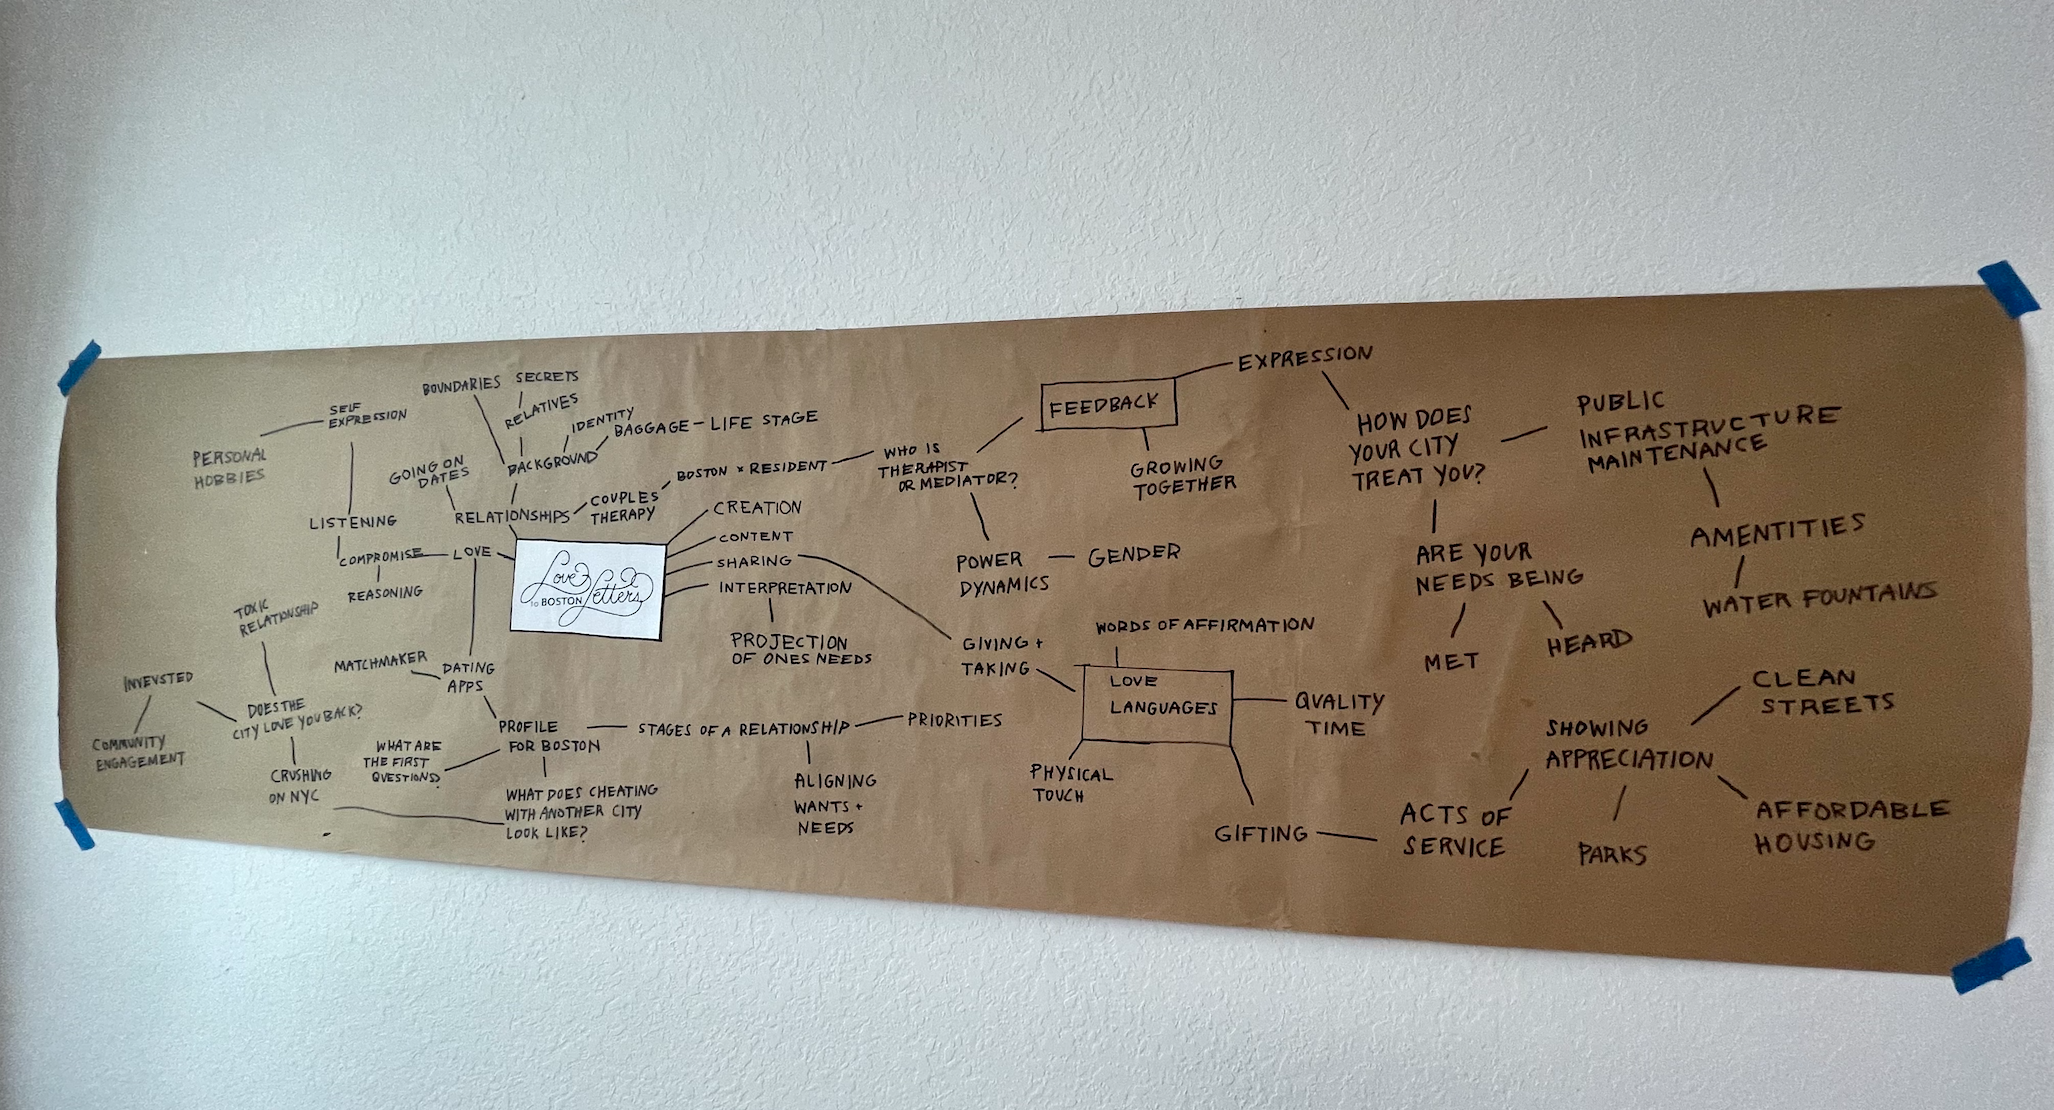 PERSONAL
HOBBIES
SELF
EXPRESSION
LISTENING
COMPROMISE
REASONING
LOVE
GOING ON
DATES
BOUNDARIES
SECRETS
RELATIVES
IDENTITY
BAGGAGE - LIFE STAGE
BACKGROUND
RELATIONSHIPS
COUPLES
THERAPY
BOSTON x RESIDENT
Love
to BOSTON
Letters
CREATION
CONTENT
SHARING
INTERPRETATION
PROJECTION
OF ONES NEEDS
TOXIC
RELATIONSHIP
INVEVSTED
COMMUNITY
ENGAGEMENT
DOES THE
CITY LOVE YOU BACK?
CRUSHING
ON NYC
MATCHMAKER
DATING
APPS
PROFILE
FOR BOSTON
WHAT ARE
THE FIRST
QUESTIONS?
WHAT DOES CHEATING
WITH ANOTHER CITY
LOOK LIKE?
STAGES OF A RELATIONSHIP
PRIORITIES
ALIGNING
WANTS +
NEEDS
WHO IS
THERAPIST
OR MEDIATOR?
POWER
DYNAMICS
GENDER
FEEDBACK
GROWING
TOGETHER
EXPRESSION
HOW DOES
YOUR CITY
TREAT YOU?
PUBLIC
INFRASTRUCTURE
MAINTENANCE
AMENTITIES
WATER FOUNTAINS
ARE YOUR
NEEDS BEING
MET
HEARD
GIVING +
TAKING
WORDS OF AFFIRMATION
LOVE
LANGUAGES
QUALITY
TIME
PHYSICAL
TOUCH
GIFTING
ACTS OF
SERVICE
SHOWING
APPRECIATION
CLEAN
STREETS
PARKS
AFFORDABLE
HOUSING